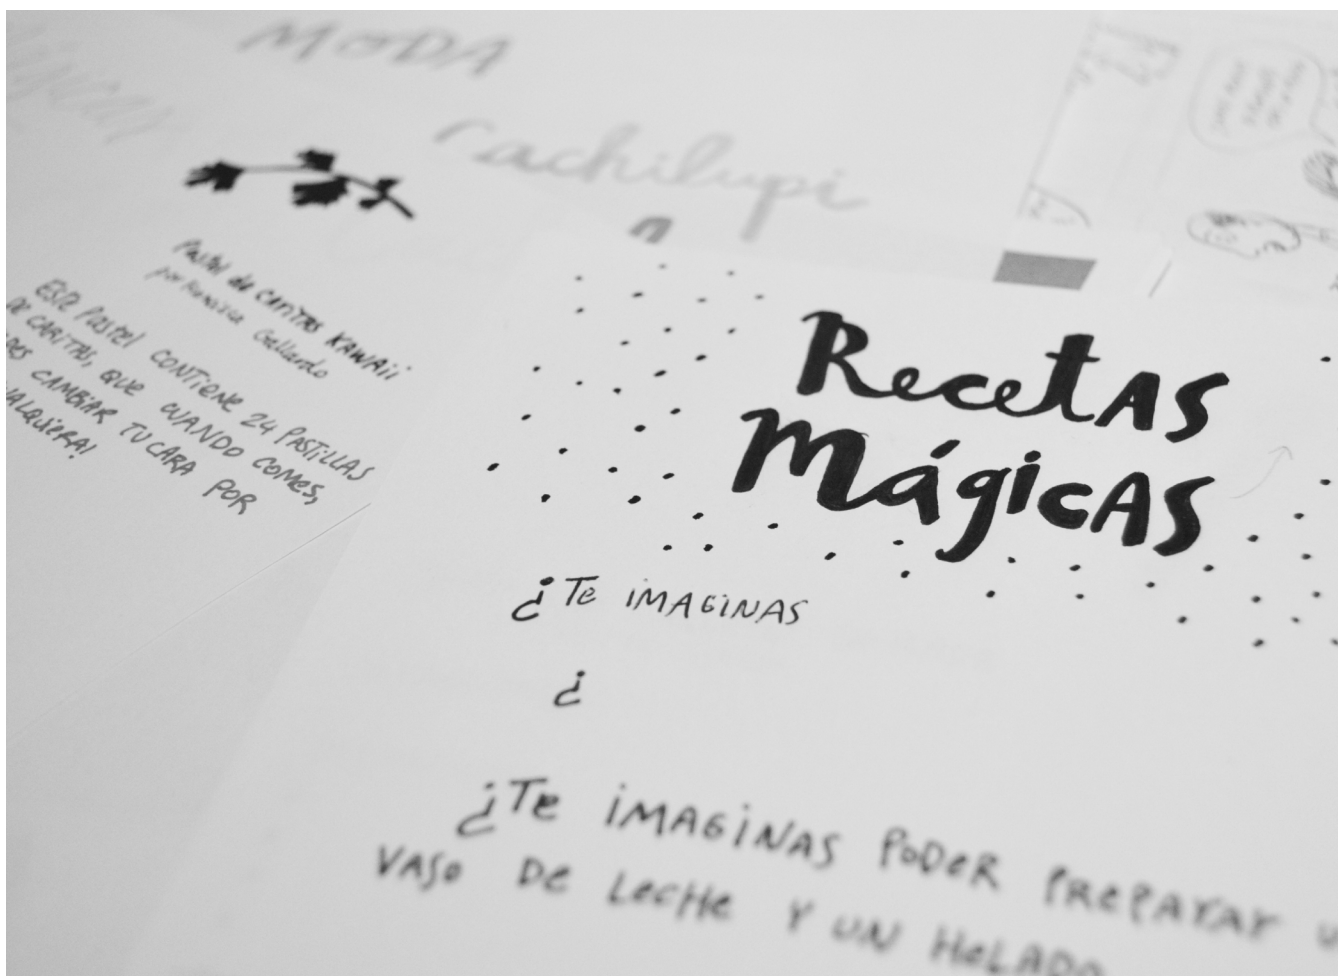 MODA
Cachilupi
Pastel de CARITAS KAWAii
por Francisca Gallardo
ESTE PASTEL CONTIENE 24 PASTILLAS
DE CARITAS, QUE CUANDO COMES,
CAMBIAR TU CARA POR
RecetAS
MágicAS
¿Te iMAGiNAS
¿
¿Te iMAGiNAS PoDeR PRePARAR
VASo De LecHe Y UN HeLADo